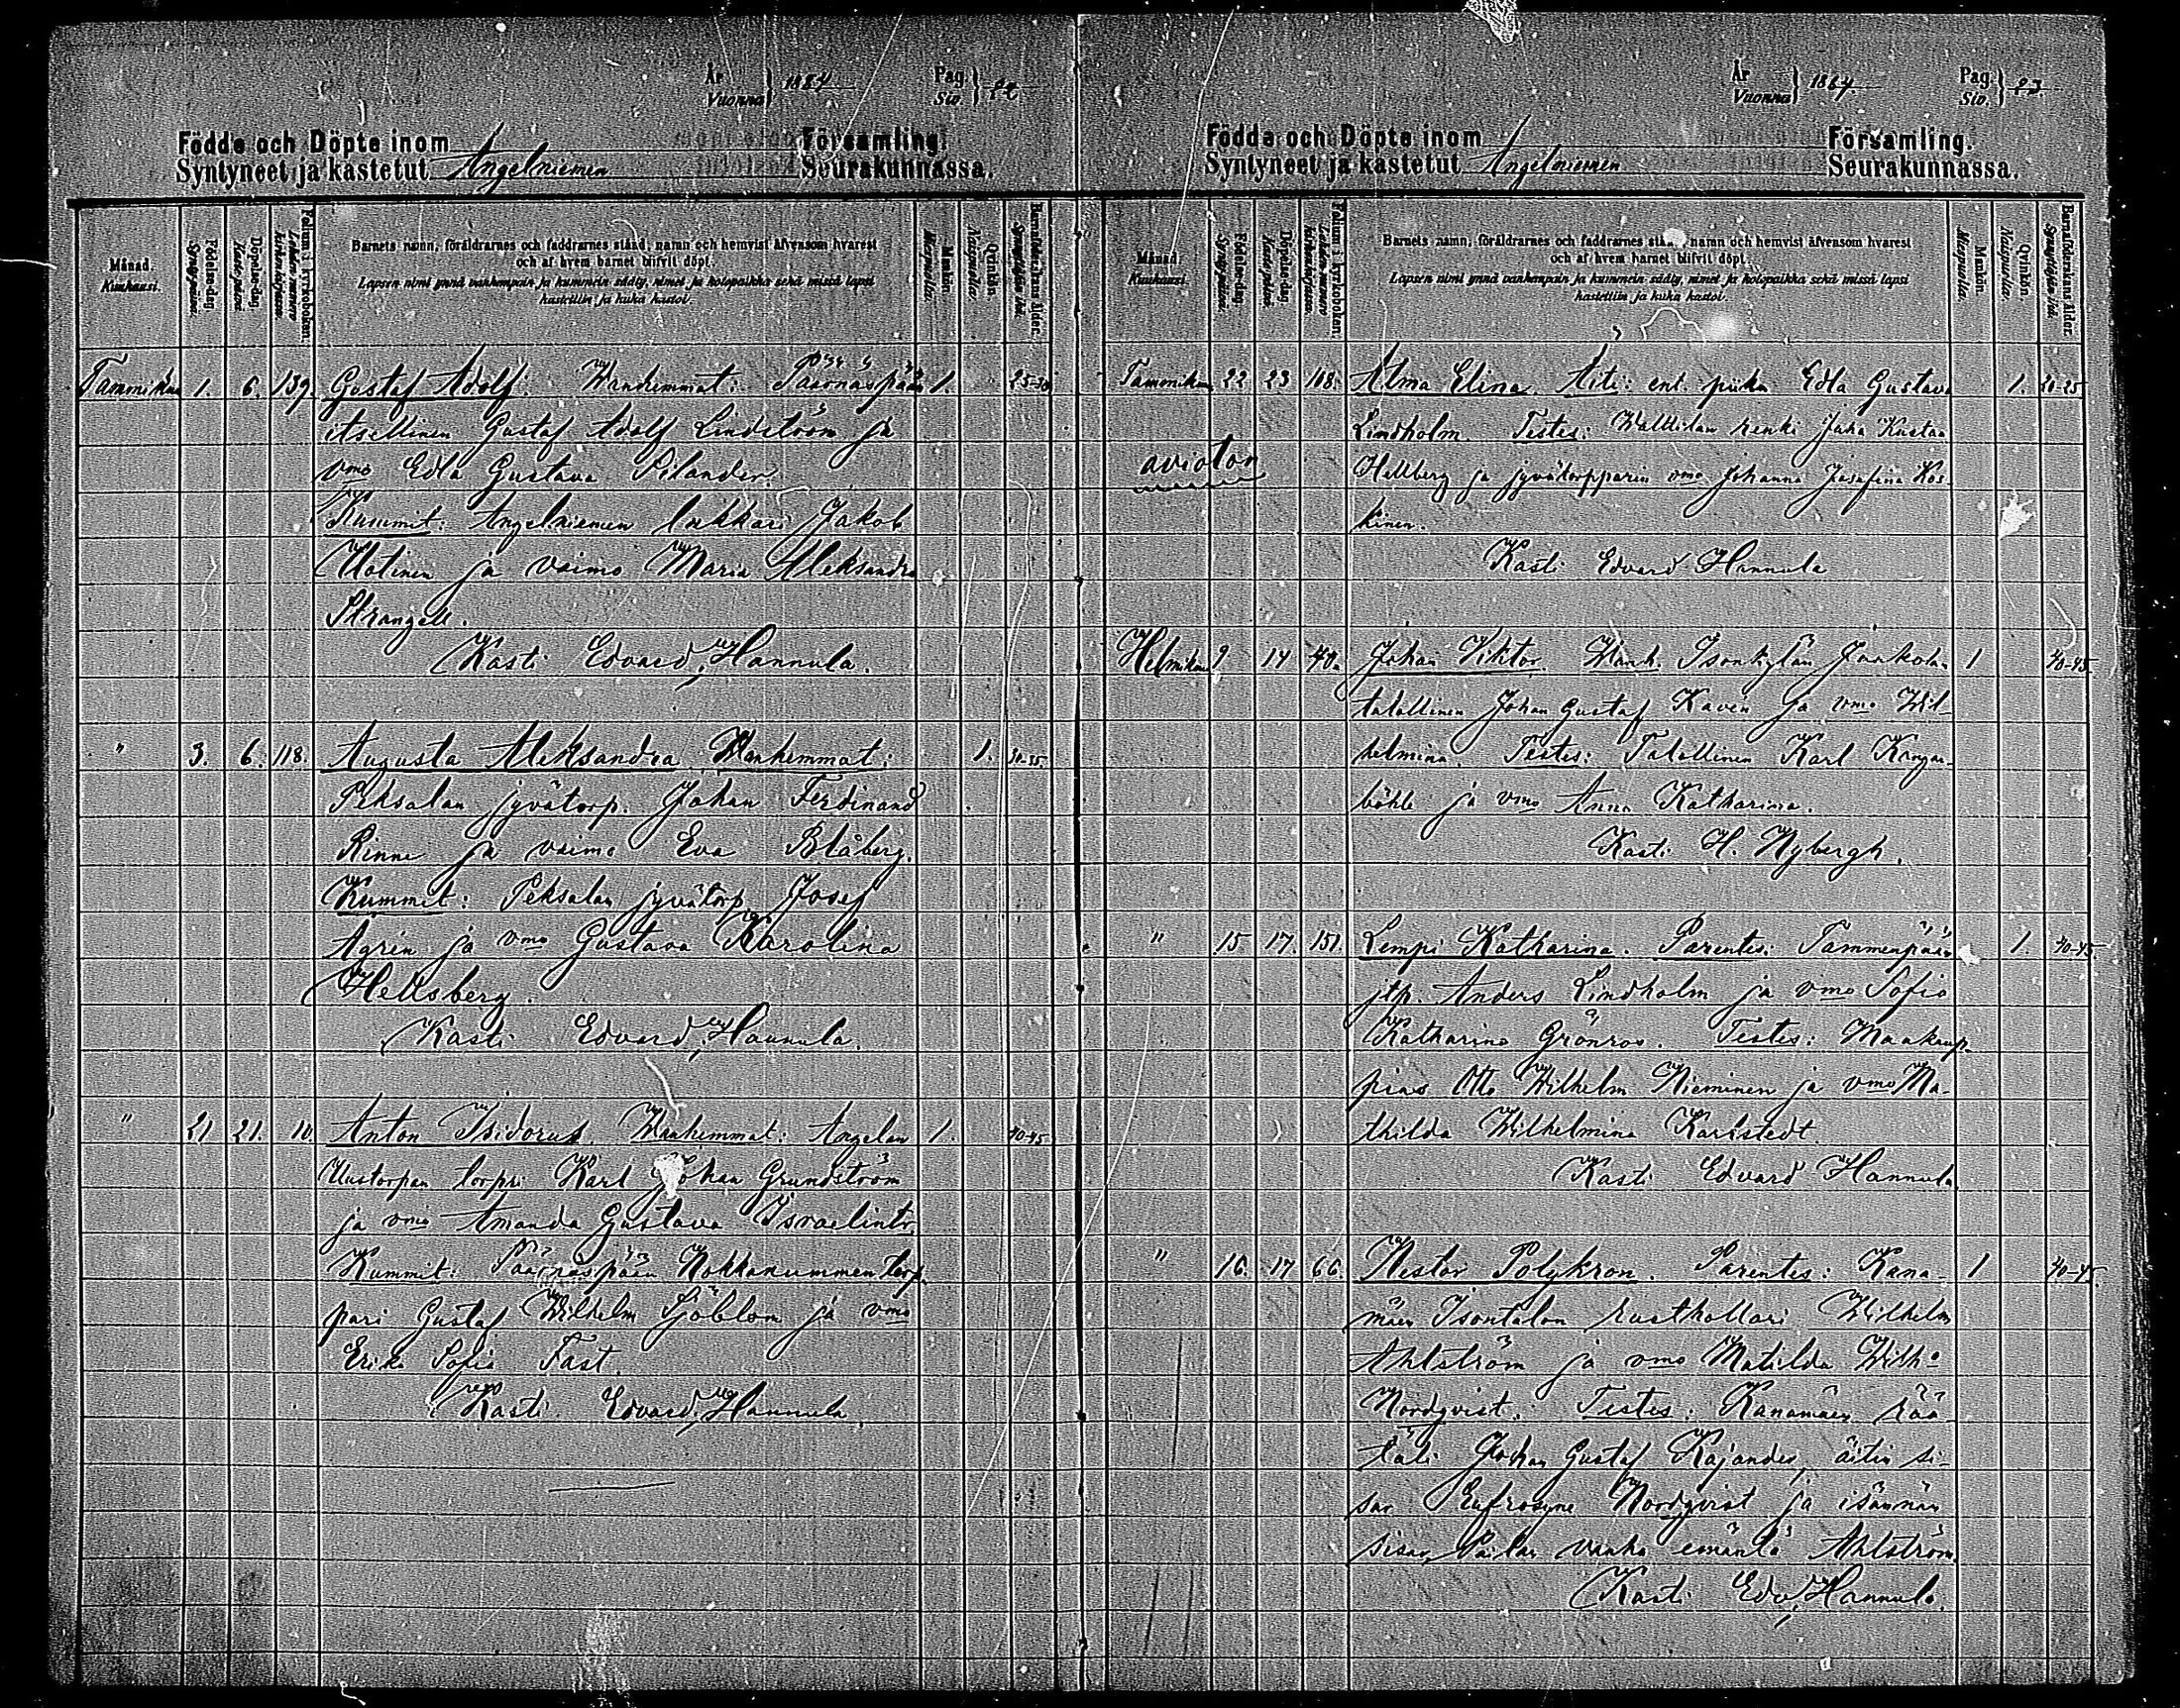 År
Vuonna } 1884
Pag.
Siv. } 22
Födde och Döpte inom
Syntyneet ja kastetut Angelniemen
Församling.
Seurakunnassa.
Månad.
Kuukausi.
Födelse-dag.
Syntypäivä.
Döpelse-dag.
Kastepäivä.
Folium i kyrkoboken.
Lehden numero kirkonkirjassa.
Barnets namn, föräldrarnes och faddrarnes stånd, namn och hemvist äfvensom hvarest
och af hvem barnet blifvit döpt.
Lapsen nimi ynnä vanhempain ja kummein sääty, nimet ja kotopaikka sekä missä lapsi
kastettiin ja kuka kastoi.
Mankön.
Miespuolia.
Qvinkön.
Naispuolia.
Barnaföderskans ålder.
Synnyttäjän ikä.
Tammikuu 1. 6. 139. Gustaf Adolf. Wanhemmat: Päärnäspään 1. 25-30
itsellinen Gustaf Adolf Lindström ja
vmo Edla Gustava Silander.
Kummit: Angelniemen lukkari Jakob
Uotinen ja vaimo Maria Aleksandra
Strangell.
Kasti Edvard Hannula.
" 3. 6. 118. Augusta Aleksandra Wanhemmat: 1. 30-35
Peksalan jyvätorp. Johan Ferdinand
Rinne ja vaimo Eva Blåberg.
Kummit: Peksalan jyvätorp. Josef
Agrén ja vmo Gustava Karolina
Hellsberg.
Kasti Edvard Hannula.
" 21 21. 10. Anton Isidorus. Wanhemmat: Angelan 1. 40-45
Uustorpan torpri Karl Johan Grundström
ja vmo Amanda Gustava Israelintr.
Kummit: Päärnäspään Nokkanummen torp-
pari Gustaf Wilhelm Sjöblom ja vmo
Erika Sofia Fast.
Kasti Edvard Hannula.
År
Vuonna } 1884.
Pag.
Siv. } 23.
Födda och Döpte inom
Syntyneet ja kastetut Angelniemen
Församling.
Seurakunnassa.
Månad.
Kuukausi.
Födelse-dag.
Syntypäivä.
Döpelse-dag.
Kastepäivä.
Folium i kyrkoboken.
Lehden numero kirkonkirjassa.
Barnets namn, föräldrarnes och faddrarnes stånd, namn och hemvist äfvensom hvarest
och af hvem barnet blifvit döpt.
Lapsen nimi ynnä vanhempain ja kummein sääty, nimet ja kotopaikka sekä missä lapsi
kastettiin ja kuka kastoi.
Mankön.
Miespuolia.
Qvinkön.
Naispuolia.
Barnaföderskans ålder.
Synnyttäjän ikä.
Tammikuu 22 23 108. Alma Elina. Äiti: ent. piika Edla Gustava 1. 20-25
Lindholm. Testes: Walttilan renki Juha Kustaa
avioton Hellberg ja jyvätorpparin vmo Johanna Josefina Kos-
kinen.
Kasti Edvard Hannula
Helmikuu 9 14 40. Johan Viktor. Wanh. Isonkylän Jaakolan 1 40-45
talollinen Johan Gustaf Kavén ja vmo Wil-
helmina. Testes: Talollinen Karl
böhle ja vmo Anna Katharina.
Kasti H. Nybergh.
" 15 17. 151. Lempi Katharina. Parentes: Tammenpään 1. 40-45
jtp. Anders Lindholm ja vmo Sofia
Katharina Grönroos. Testes: Maakaup-
pias Otto Wilhelm Nieminen ja vmo Ma-
thilda Wilhelmina Karlstedt.
Kasti Edvard Hannula
" 16. 17 66. Nestor Polykron. Parentes: Kana- 1 40-45.
mäen Isontalon rusthollari Wilhelm
Ahlström ja vmo Matilda Wilh:a
Nordqvist. Testes: Kanamäen rää-
täli Johan Gustaf Kajander, äitin si-
sar Eufrosyne Nordqvist ja isännän
sisar, vanha emäntä Ahlström.
Kasti Edv. Hannula.